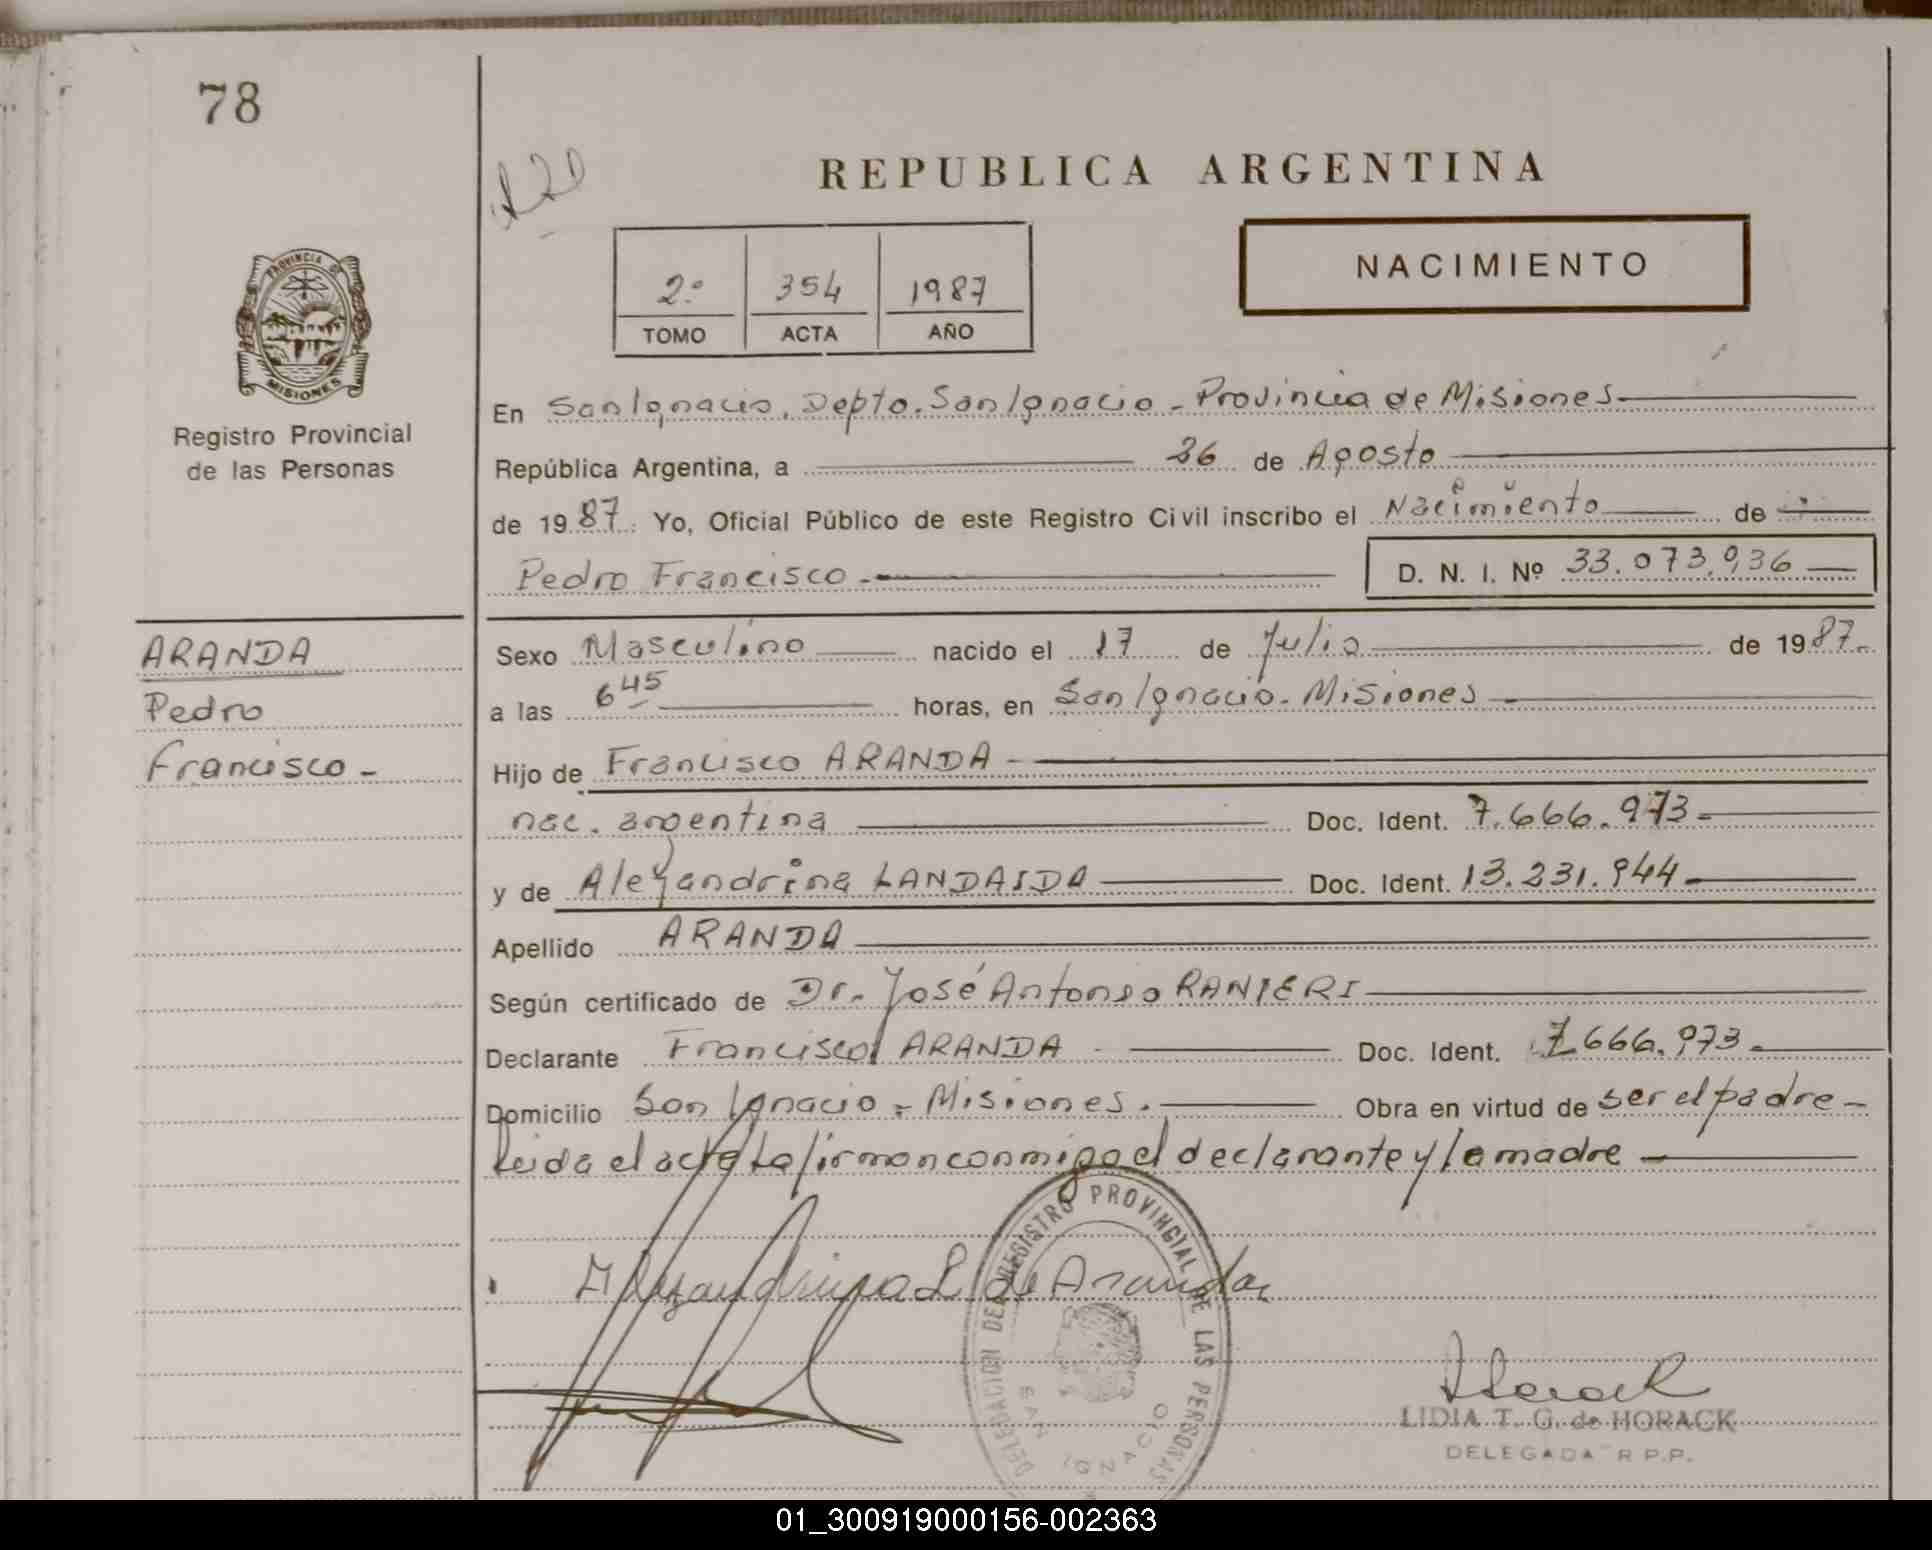 78
REPUBLICA ARGENTINA
2.º 354 1987
TOMO ACTA AÑO
NACIMIENTO
PROVINCIA DE
MISIONES
Registro Provincial
de las Personas
En San Ignacio. Depto. San Ignacio - Provincia de Misiones
República Argentina, a 26 de Agosto
de 1987. Yo, Oficial Público de este Registro Civil inscribo el Nacimiento de
Pedro Francisco.- D. N. I. Nº 33.073.936
ARANDA
Pedro
Francisco -
Sexo Masculino nacido el 17 de Julio de 1987.-
a las 6 45 horas, en San Ignacio - Misiones
Hijo de Francisco ARANDA
nac. argentina Doc. Ident. 7.666.973-
y de Alejandrina LANDAIDA Doc. Ident. 13.231.944-
Apellido ARANDA
Según certificado de Dr. José Antonio RANIERI
Declarante Francisco ARANDA Doc. Ident. 7.666.973-
Domicilio San Ignacio - Misiones. Obra en virtud de ser el padre -
Leida el acta la firman conmigo el declarante y la madre
Alejandrina L de Aranda
DELEGACION DEL REGISTRO PROVINCIAL DE LAS PERSONAS
SAN IGNACIO
Horack
LIDIA T. G. de HORACK
DELEGADA R.P.P.
01_300919000156-002363